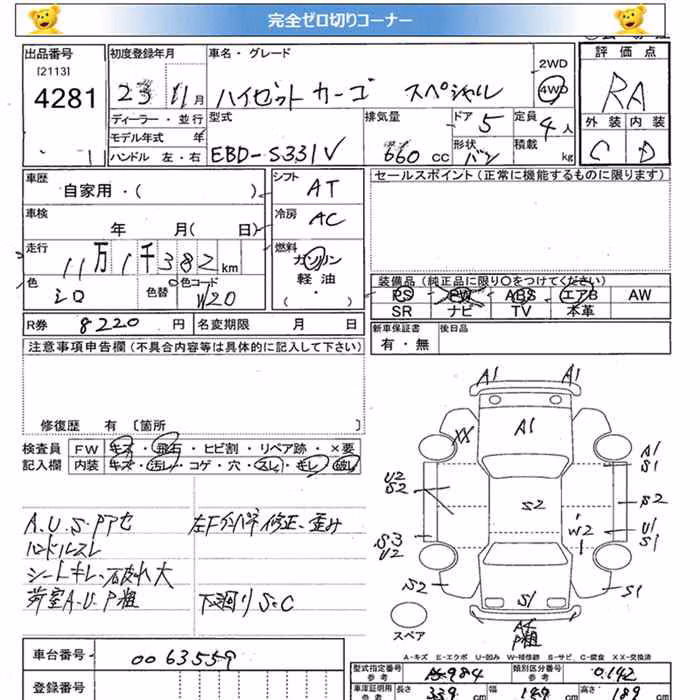 完全ゼロ切りコーナー
出品番号 初度登録年月 車名・グレード 評価点
[2113] 4281
23 11月 ハイゼットカーゴ スペシャル 2WD 4WD RA
ディーラー・並行 型式 排気量 ドア 定員 外装 内装
モデル年式 年 5 4人
ハンドル 左・右 EBD-S331V 660cc 形状 バン 積載 kg C D
車歴 自家用・( ) シフト AT セールスポイント(正常に機能するものに限ります)
車検 年 月( 日) 冷房 AC
走行 11万1千382km 燃料 ガソリン
軽油・
( )
色 シロ 色替 色コード W20
装備品(純正品に限り○をつけてください)
PS PW ABS エアB AW
SR ナビ TV 本革
R券 8220円 名変期限 月 日 新車保証書 後日品
有・無
注意事項申告欄(不具合内容等は具体的に記入して下さい)
修復歴 有 〔箇所 〕
検査員 FW キズ・飛石・ヒビ割・リペア跡・×要
記入欄 内装 キズ・汚れ・コゲ・穴・スレ・キレ・破れ
A.U.S.Pアセ 左Fインパネ修正、歪み
ハンドルスレ
シートキレ、破れ大
荷室A.U.P粗 下廻りS.C
A1 A1
XX A1 A1
S1
U2
S2 S2 S2
W2 U1
S1
S3
U2
S2 S1 S1
P粗
スペア
A-キズ E-エクボ U-凹み W-補修跡 S-サビ C-腐食 XX-交換済
車台番号 0063559
登録番号
型式指定番号 参考 984 類別区分番号 参考 0142
車庫証明用 参考 長さ 339 幅 高さ 189